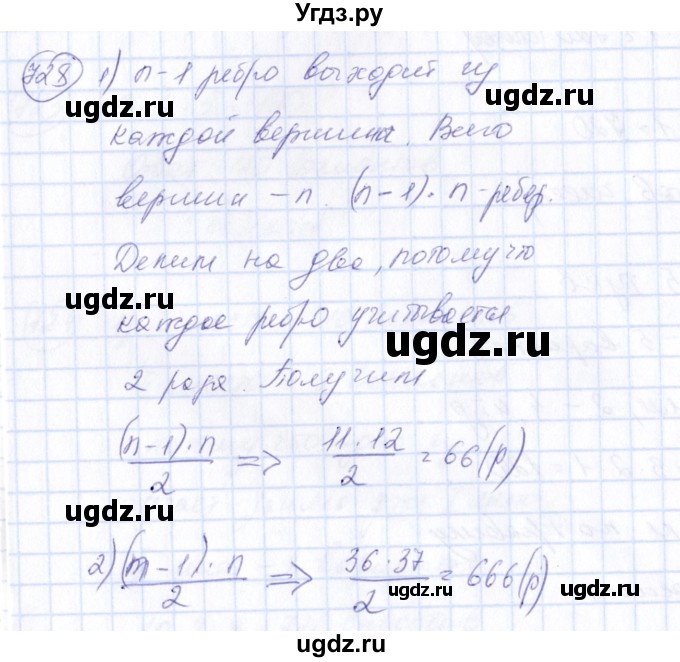 Угдз.ру
728 1) n-1 ребро выходит из
ugdz.ru
каждой вершины. Всего
вершин - n. (n-1)·n - ребер.
ugdz.ru ugdz.ru
Делим на два, потомучто
ugdz.ru
каждое ребро учитывается
ugdz.ru
2 раза. Получим
(n-1)·n/2 => 11·12/2 = 66(р)
ugdz.ru
2) (m-1)·n/2 => 36·37/2 = 666(р)
ugdz.ru ugdz.ru
ugdz.ru